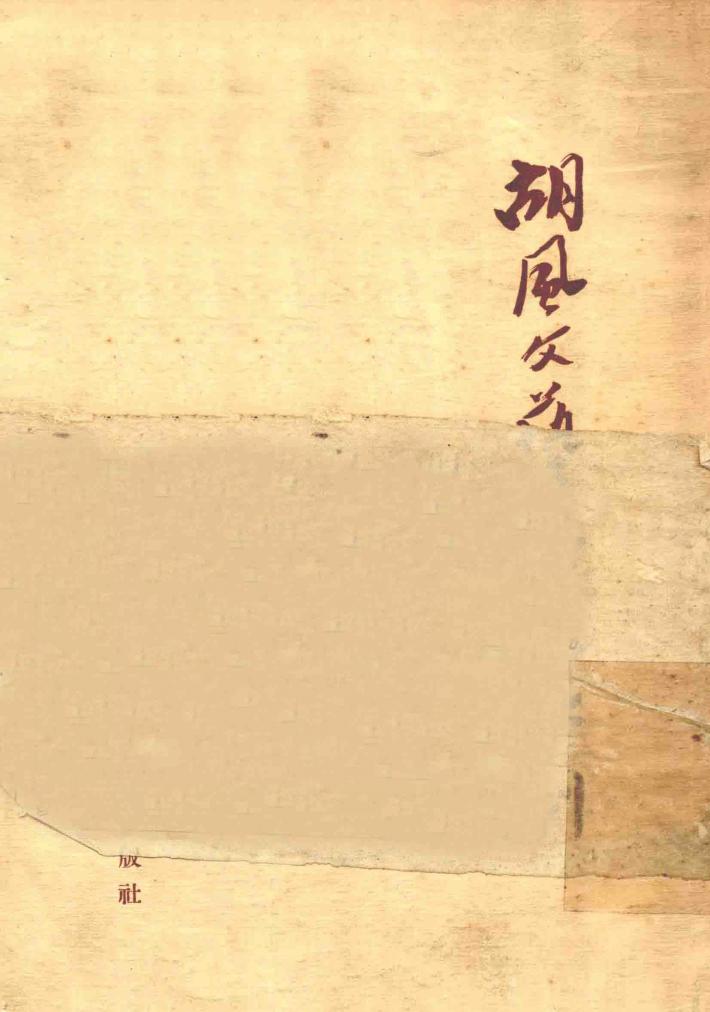 胡风文
版社